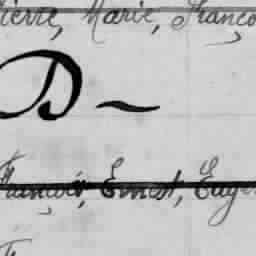 Pierre, Marie, Franço
D —
François, Ernest, Eugè